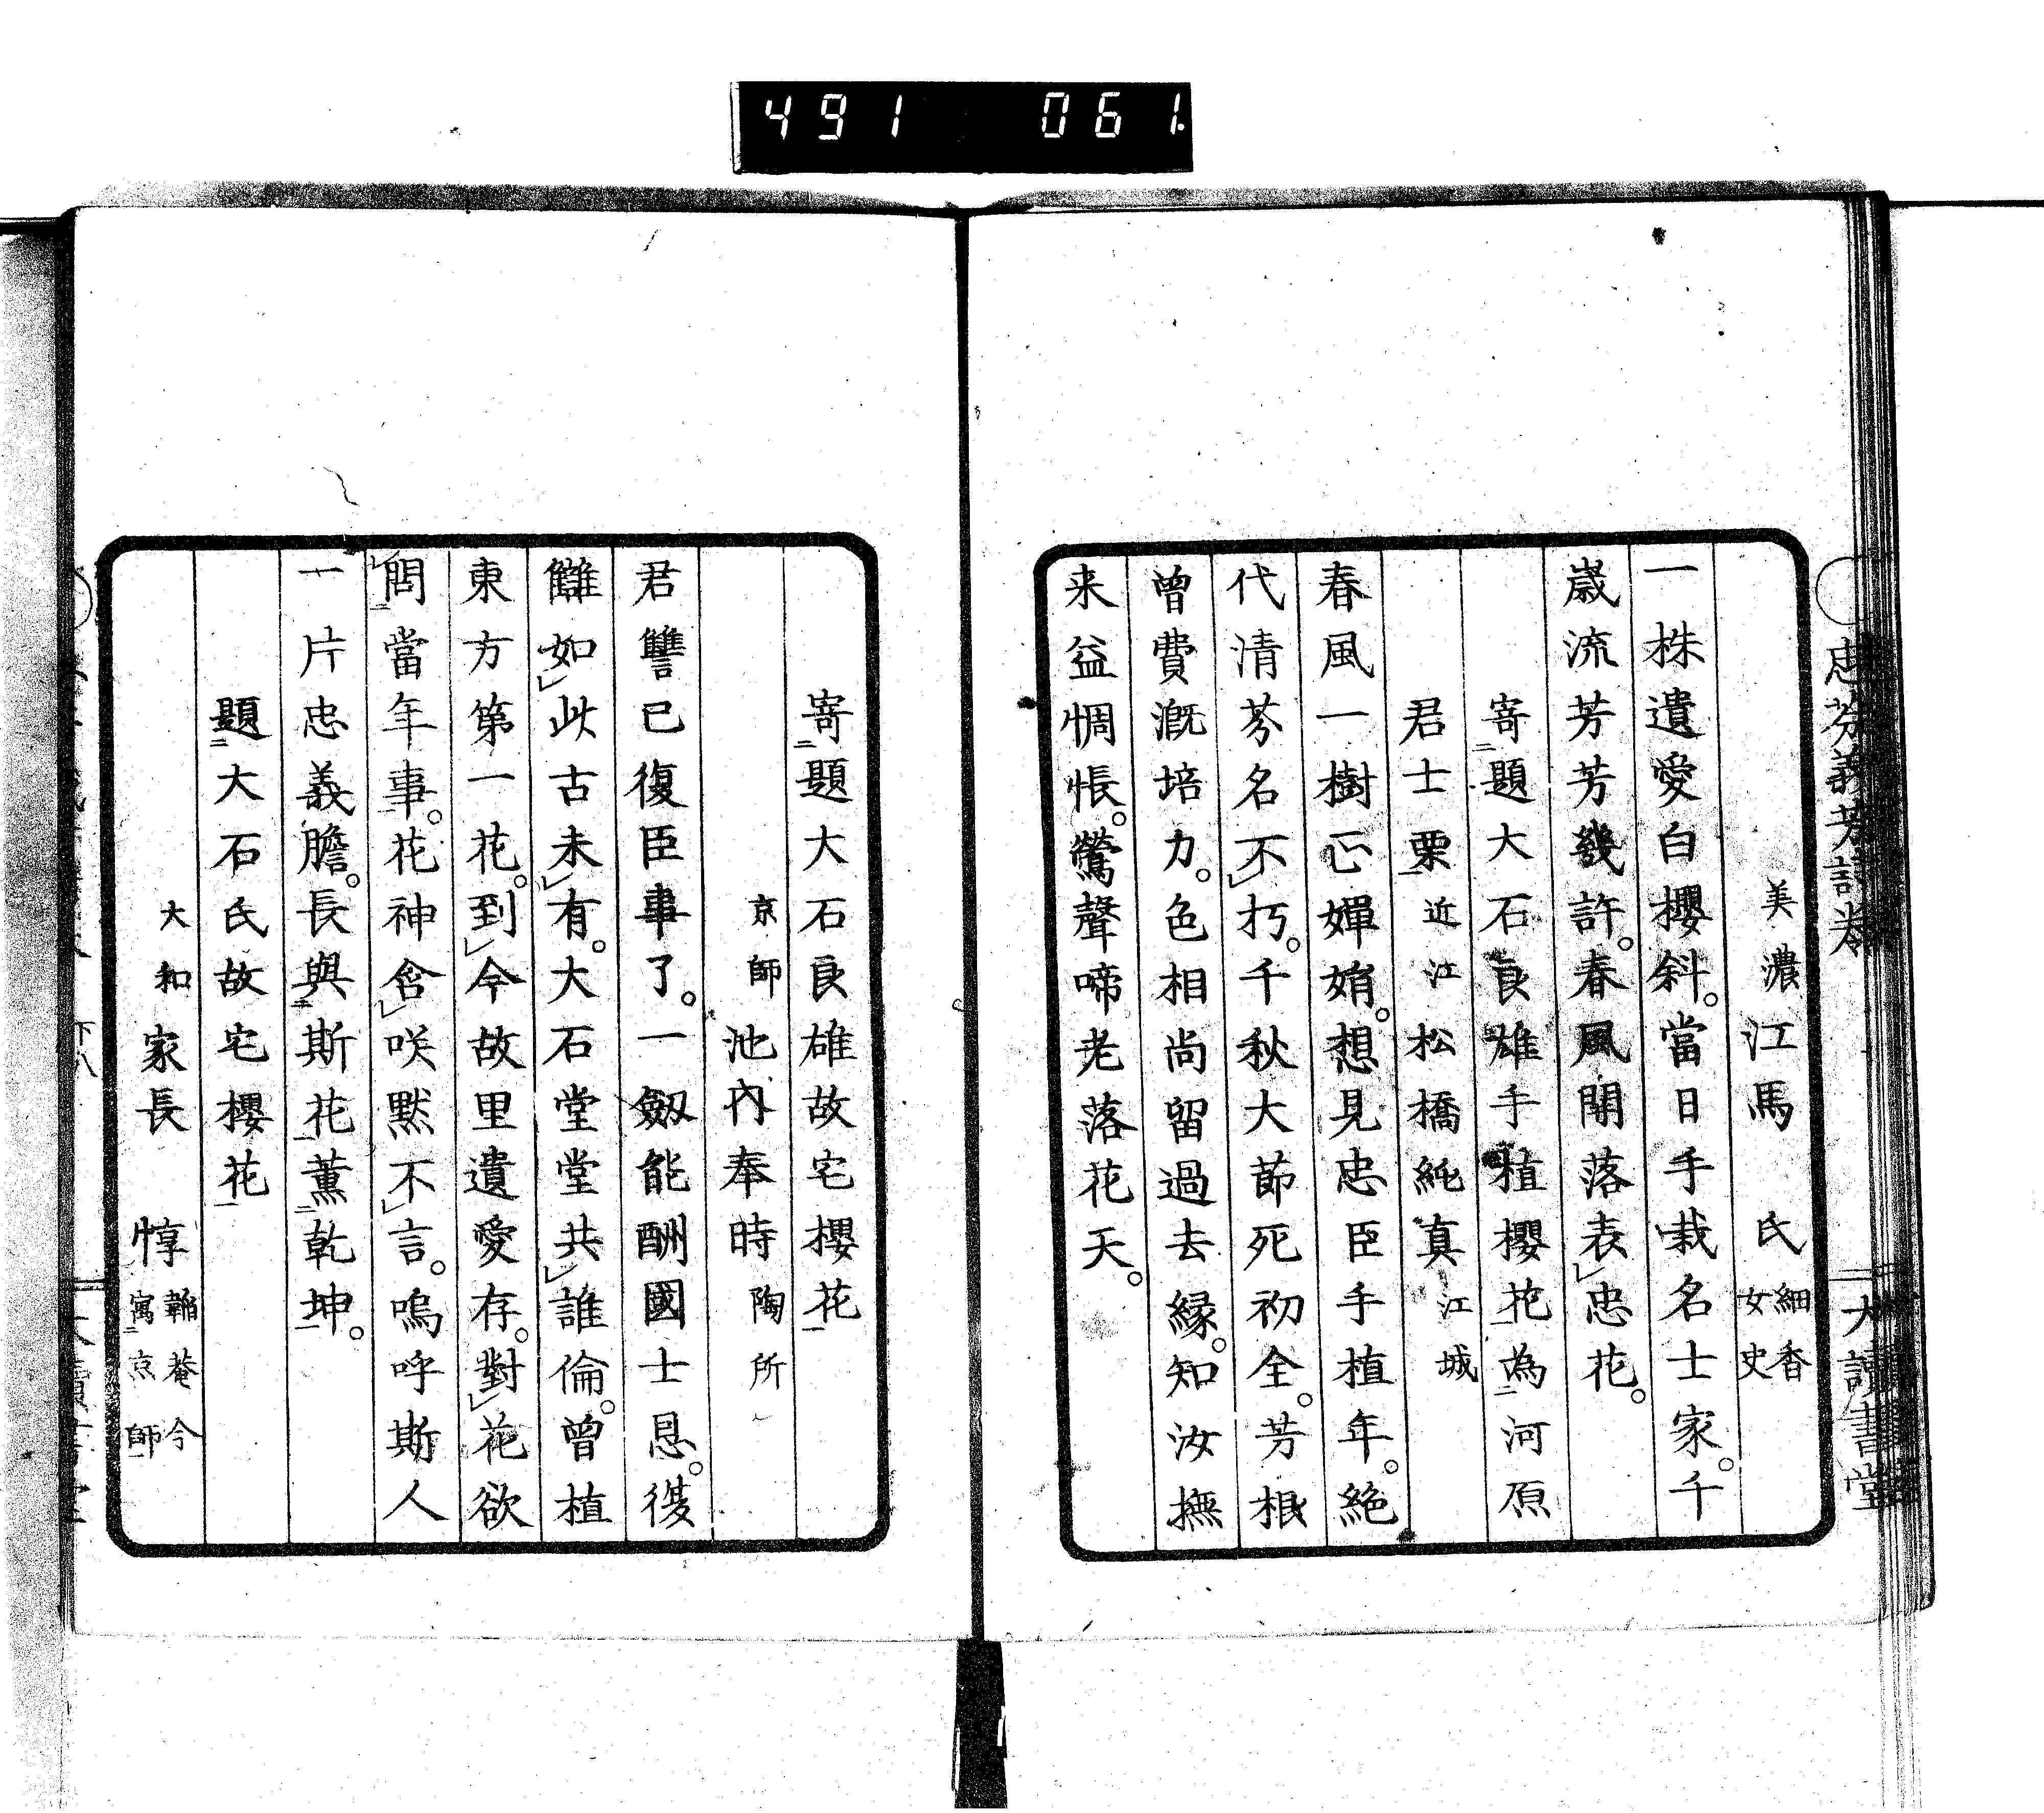 491 061
忠芬義芳詩卷 大讀書堂
美濃 江馬 氏 細香女史
一株遺愛白櫻斜。當日手栽名士家。千
歲流芳芳幾許。春風開落表忠花。
寄題大石良雄手植櫻花為河原
君士栗 近江 松橋純真 江城
春風一樹心嬋娟。想見忠臣手植年。絕
代清芬名不朽。千秋大節死初全。芳根
曾費漑培力。色相尚留過去緣。知汝撫
来益惆悵。鶯聲啼老落花天。
寄題大石良雄故宅櫻花
京師 池內奉時 陶所
君讐已復臣事了。一劔能酬國士恩。復
讎如此古未有。大石堂堂共誰倫。曾植
東方第一花。到今故里遺愛存。對花欲
問當年事。花神含咲默不言。嗚呼斯人
一片忠義膽。長與斯花薰乾坤。
題大石氏故宅櫻花
大和 家長 惇 韜菴今寓京師
下八